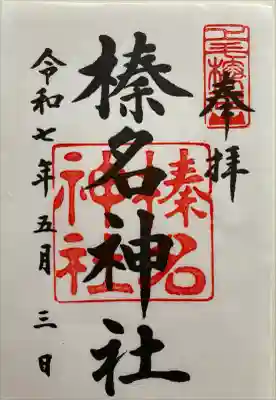 奉拝
榛名神社
榛名神社
令和七年五月三日